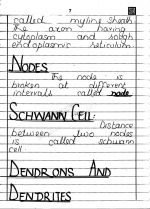 called myline sheath
the axon having
cytoplasm and sooth
endoplasmic reticulum.
NODES
The node is
broken at different
intervals called node
SCHWANN CELL:
Distance
between two nodes
is called schwann
cell
DENDRONS AND
DENDRITES